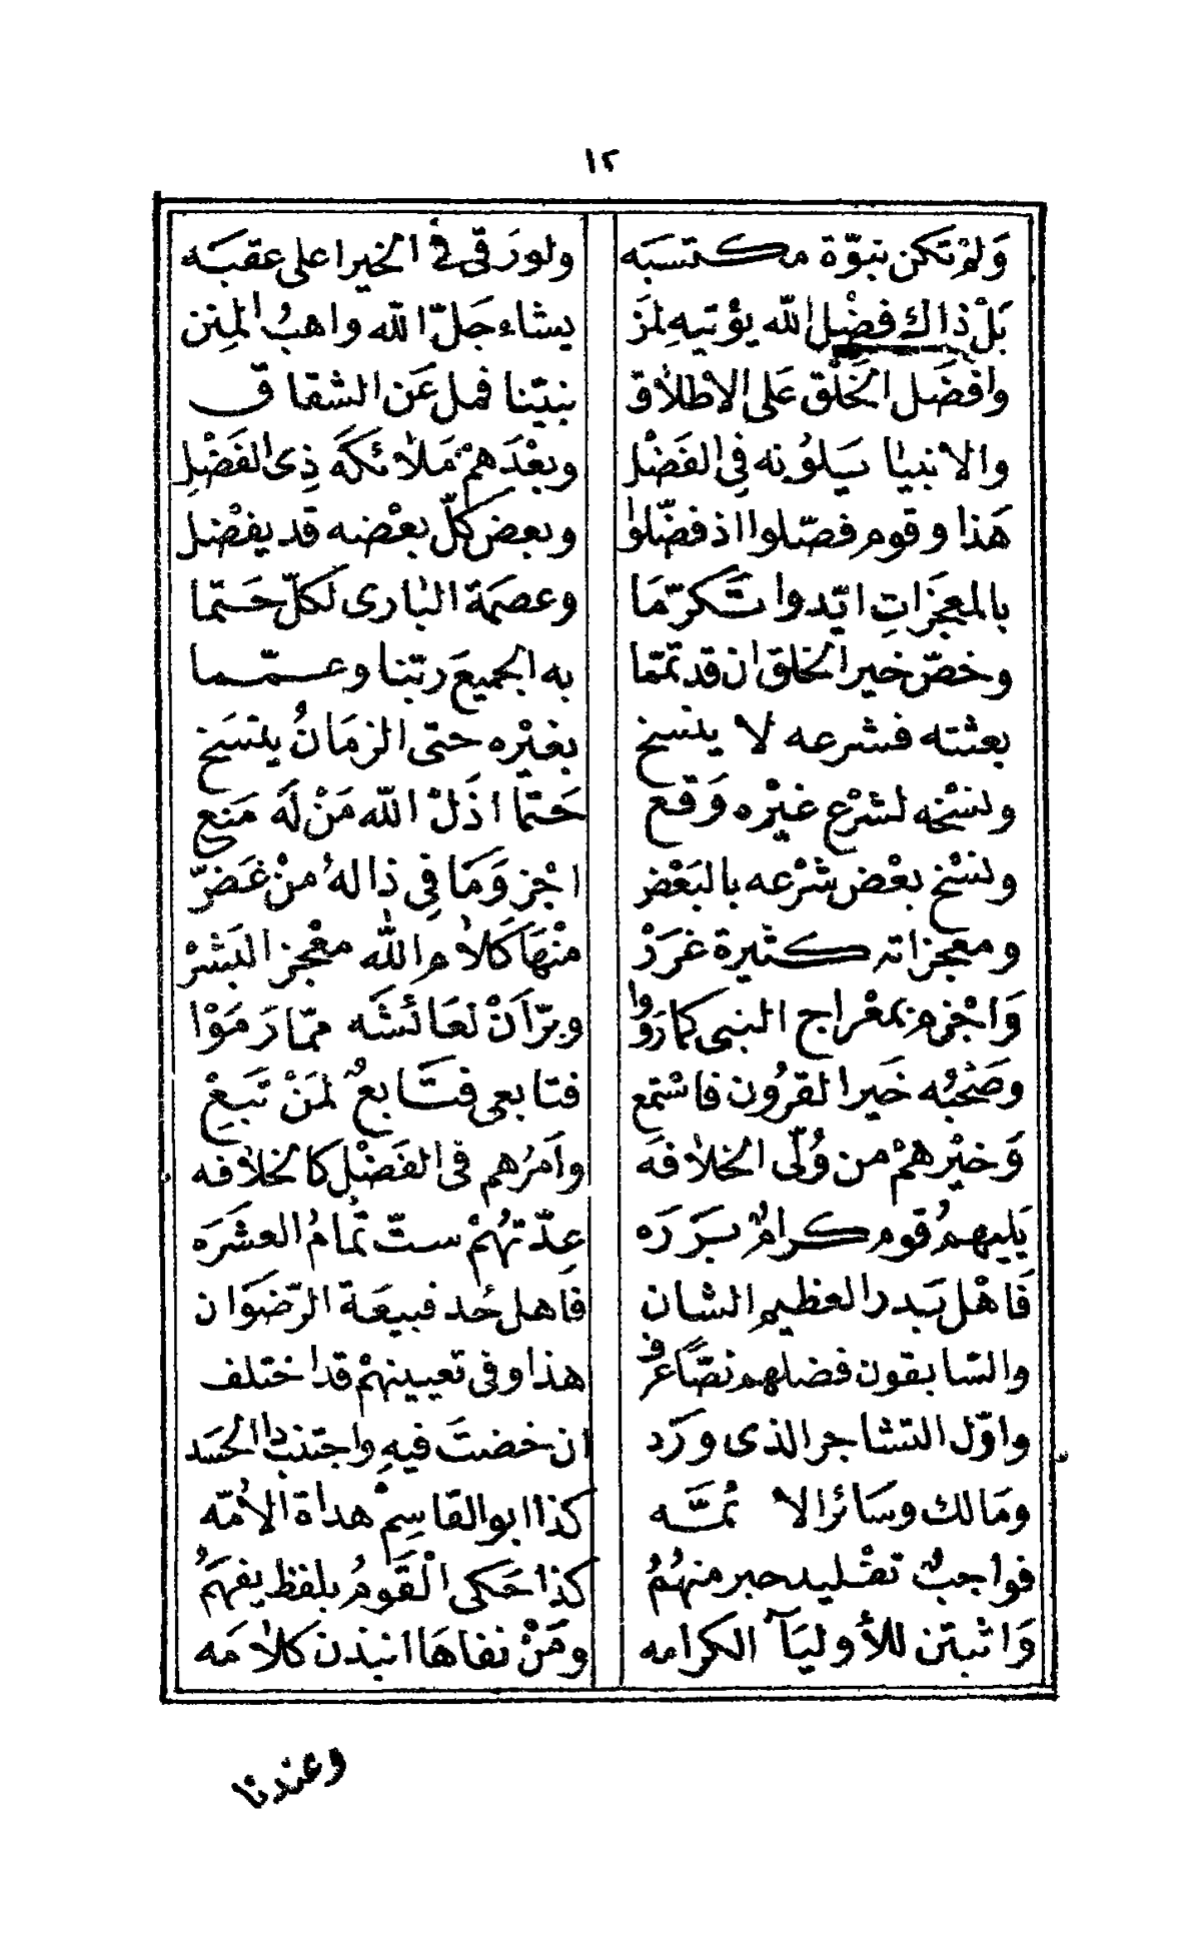 ١٢
وَلَمْ تَكن نبوّة مكتسبَه ولورَقى فى الخير اعلى عقبَه
بَلْ ذاك فضْل الله يؤتيهِ لمَن يشاء جَلّ الله واهبُ المِنن
وافضَل الخَلْق عَلى الاطلاق نبيّنا فمل عَن الشقاق
والانبيا يَلوُنه فِى الفَضْل وبعْدَهمْ مَلائكَة ذِى الفَضْلِ
هَذا وقوم فصّلوا اذ فضّلوا وبعض كلّ بعْضه قد يفضْل
بالمعجزَاتِ ايّدوا تَكرّمَا وعصمَة البارى لكلّ حَتّما
وخصّ خير الخلق ان قد تمّما به الجميعَ ربّنا وعمّما
بعثته فشرعه لا ينسخ بغيْره حتى الزمَانُ ينسَخ
ونسْخه لشرْع غيْره وَقع حَتْما اذَلْ الله مَنْ لَه مَنع
ونسْخ بعْض شرْعه بالبَعْض اجْز وَمَا فِى ذا لهُ منْ غَضّ
ومعجزاته كثيرة غرَرْ منْهَا كَلام الله معْجز البَشرْ
وَاجْزم بمعْراج النبى كما رَوَوا وبرّأنْ لعَائشَه ممّا رَمَوْا
وصَحْبُه خَير القرُون فاسْتمع فتابعى فتَابعٌ لمَنْ تَبِعْ
وَخيْرهمْ من وُلّى الخلافَه وأمرُهم فى الفَضْل كالخلافه
يَليهمُ قوم كرامٌ بَرَرَه عِدّتهُمْ ستّ تمَامُ العشَرَه
فَاهْل بَدر العظيم الشان فَاهل أحُد فبيعَة الرّضوَان
والسّابقون فضلهم نصًّا عرف هذا وفى تعيينهمْ قد اختلف
واوّل التشاجر الذى ورَد ان خضتَ فيهِ واجتنب دا الحسَد
ومَالك وسَائر الائمَّه كذا ابو القاسِمْ هداة الأمّه
فواجبٌ تقليد حبر منهُمُ كذا حَكى الْقَومُ بلفظ يفهَمُ
وَاثبتن للأوليَآ الكرامه ومَنْ نفاهَا انبذن كلامَه
وعندنا